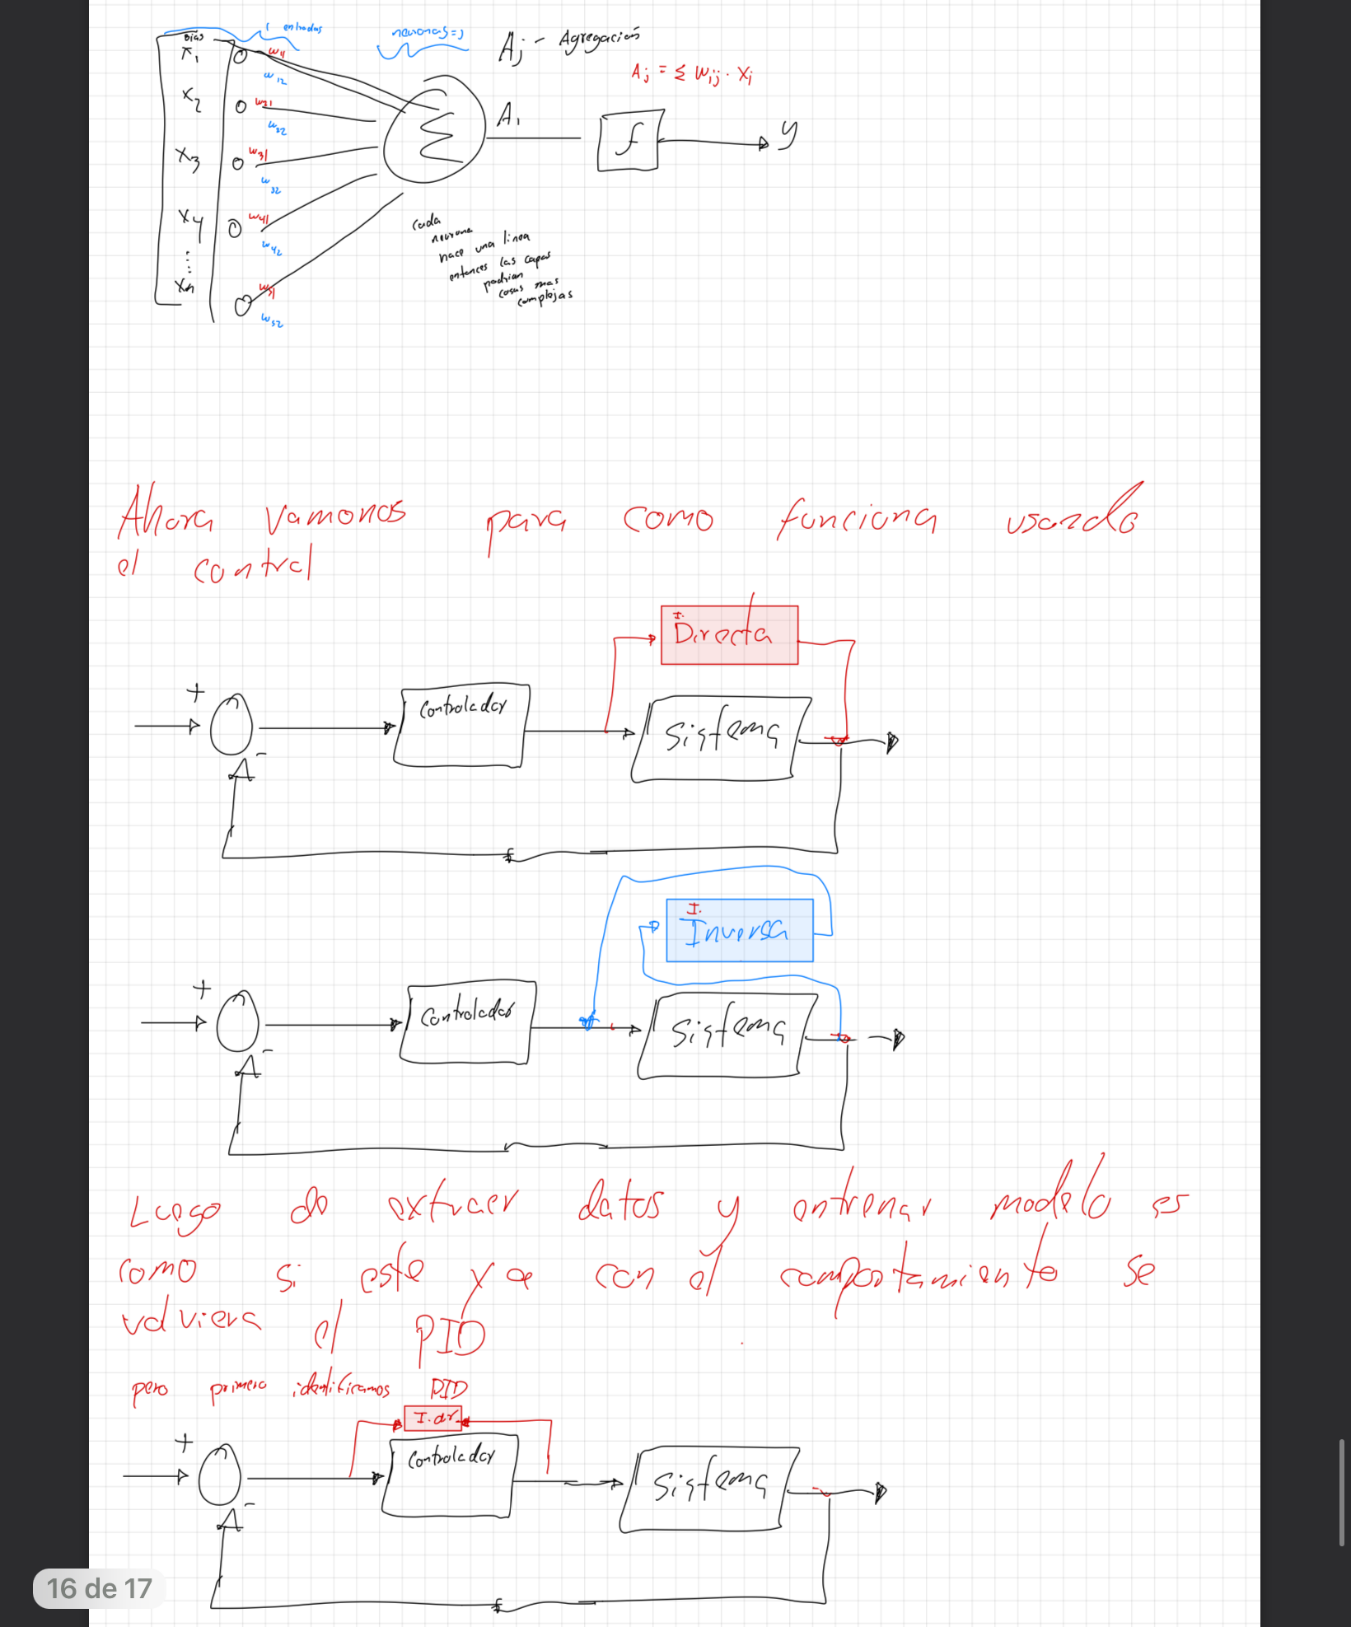 i entradas
neuronas=j
Aj - Agregación
Aj = Σ Wij · Xi
Bias
X1
w11
w12
X2
w21
w22
X3
w31
w32
X4
w41
w42
Xn
w51
w52
Σ
A1
f
y
cada
neurona
hace una linea
entonces las capas
podrian
cosas mas
complejas
Ahora vamonos para como funciona usando
el control
I.
Directa
+
-
Controlador
Sistema
I.
Inversa
+
-
Controlador
Sistema
Luego de extraer datos y entrenar modelo es
como si este ya con el comportamiento se
volviera el PID
pero primero identificamos PID
I. dr
+
-
Controlador
Sistema
16 de 17